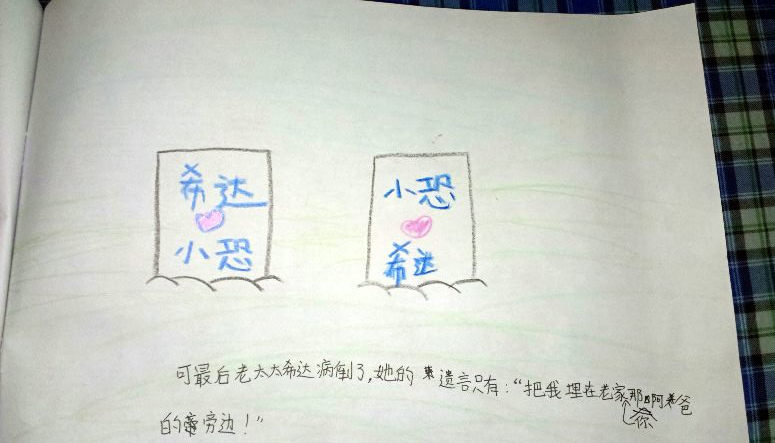 希达
小恐
小恐
希达
可最后老太太希达病倒了,她的遗言只有:“把我埋在老家那阿爸
的旁边!”